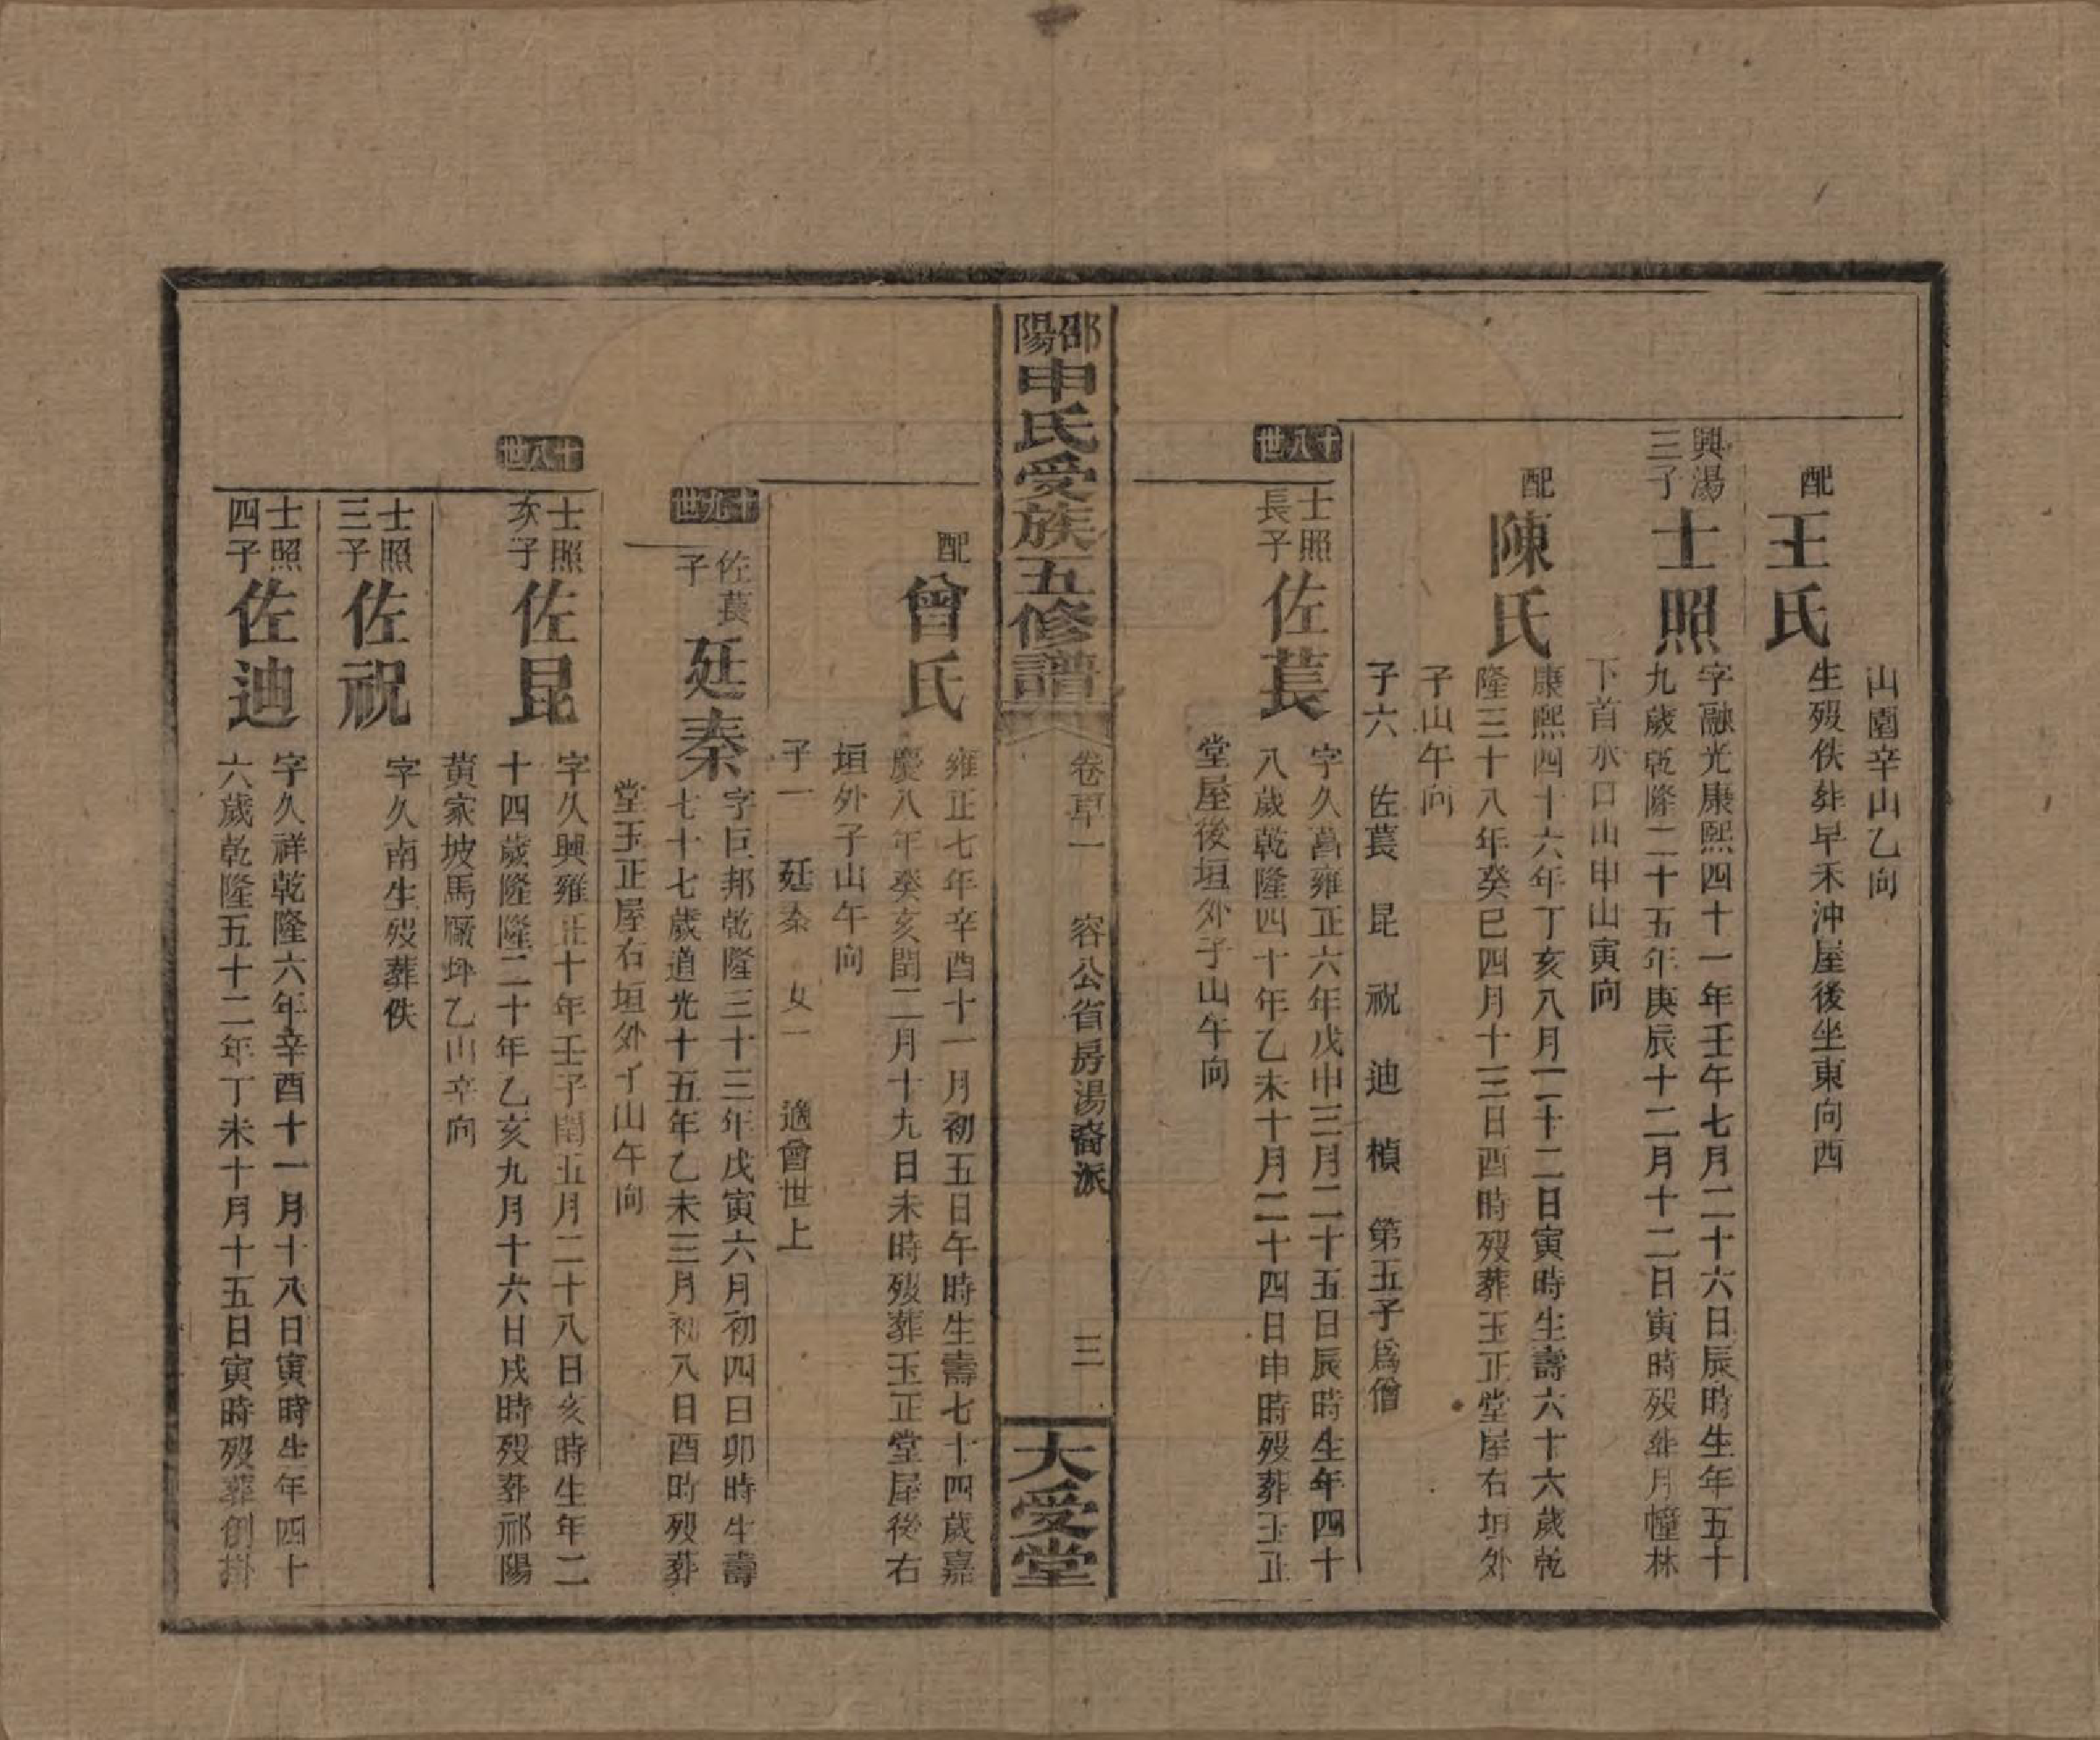 山園辛山乙向
配
王氏
生歿佚葬早禾沖屋後坐東向西
興湯
三子
士照
字融光康熙四十一年壬午七月二十六日辰時生年五十
九歲乾隆二十五年庚辰十二月十二日寅時歿葬月幢林
下首水口山申山寅向
配
陳氏
康熙四十六年丁亥八月二十二日寅時生壽六十六歲乾
隆三十八年癸巳四月十三日酉時歿葬玉正堂屋右垣外
子山午向
子六 佐萇 昆 祝 迪 楨 第五子爲僧
十八世
士照
長子
佐萇
字久菖雍正六年戊申三月二十五日辰時生年四十
八歲乾隆四十年乙未十月二十四日申時歿葬玉正
堂屋後垣外子山午向
邵陽申氏受族五修譜
卷
一
容公省房湯裔派
三
大受堂
配
曾氏
雍正七年辛酉十一月初五日午時生壽七十四歲嘉
慶八年癸亥閏二月十九日未時歿葬玉正堂屋後右
垣外子山午向
子一 廷秦 女一 適曾世上
十九世
佐萇
子
廷秦
字巨邦乾隆三十三年戊寅六月初四日卯時生壽
七十七歲道光十五年乙未三月初八日酉時歿葬
堂玉正屋右垣外子山午向
十八世
士照
次子
佐昆
字久興雍正十年壬子閏五月二十八日亥時生年二
十四歲隆隆二十年乙亥九月十六日戌時歿葬祁陽
黃家坡馬廠坪乙山辛向
士照
三子
佐祝
字久南生歿葬佚
士照
四子
佐迪
字久祥乾隆六年辛酉十一月十八日寅時生年四十
六歲乾隆五十二年丁未十月十五日寅時歿葬倒掛